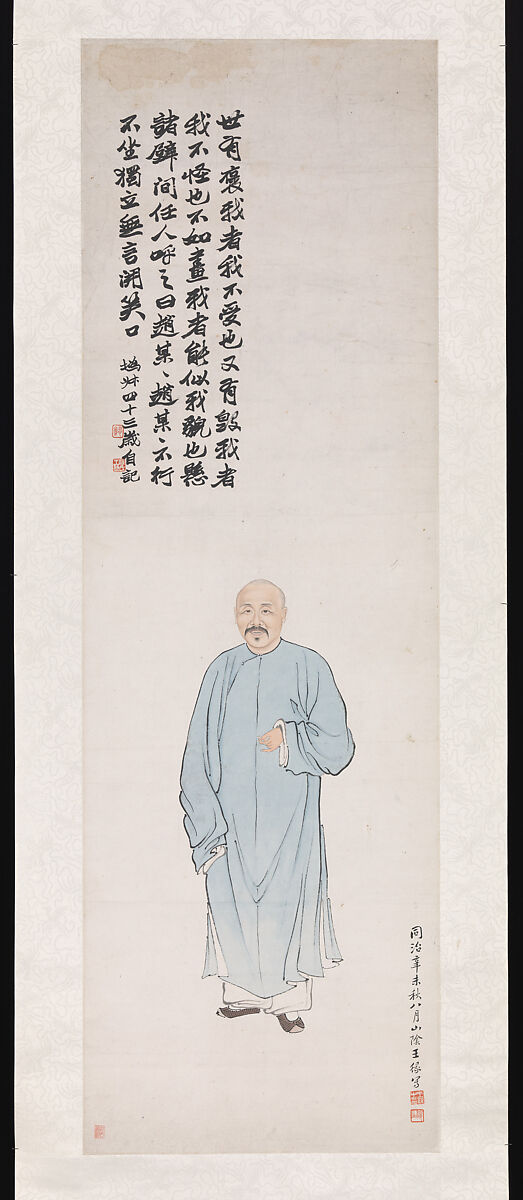 世有褒我者我不受也又有毀我者
我不怪也不如畫我者能似我貌也懸
諸壁間任人呼之曰趙某〻趙某〻不行
不坐獨立無言開笑口
撝叔四十三歲自記
同治辛未秋八月山陰王緣写